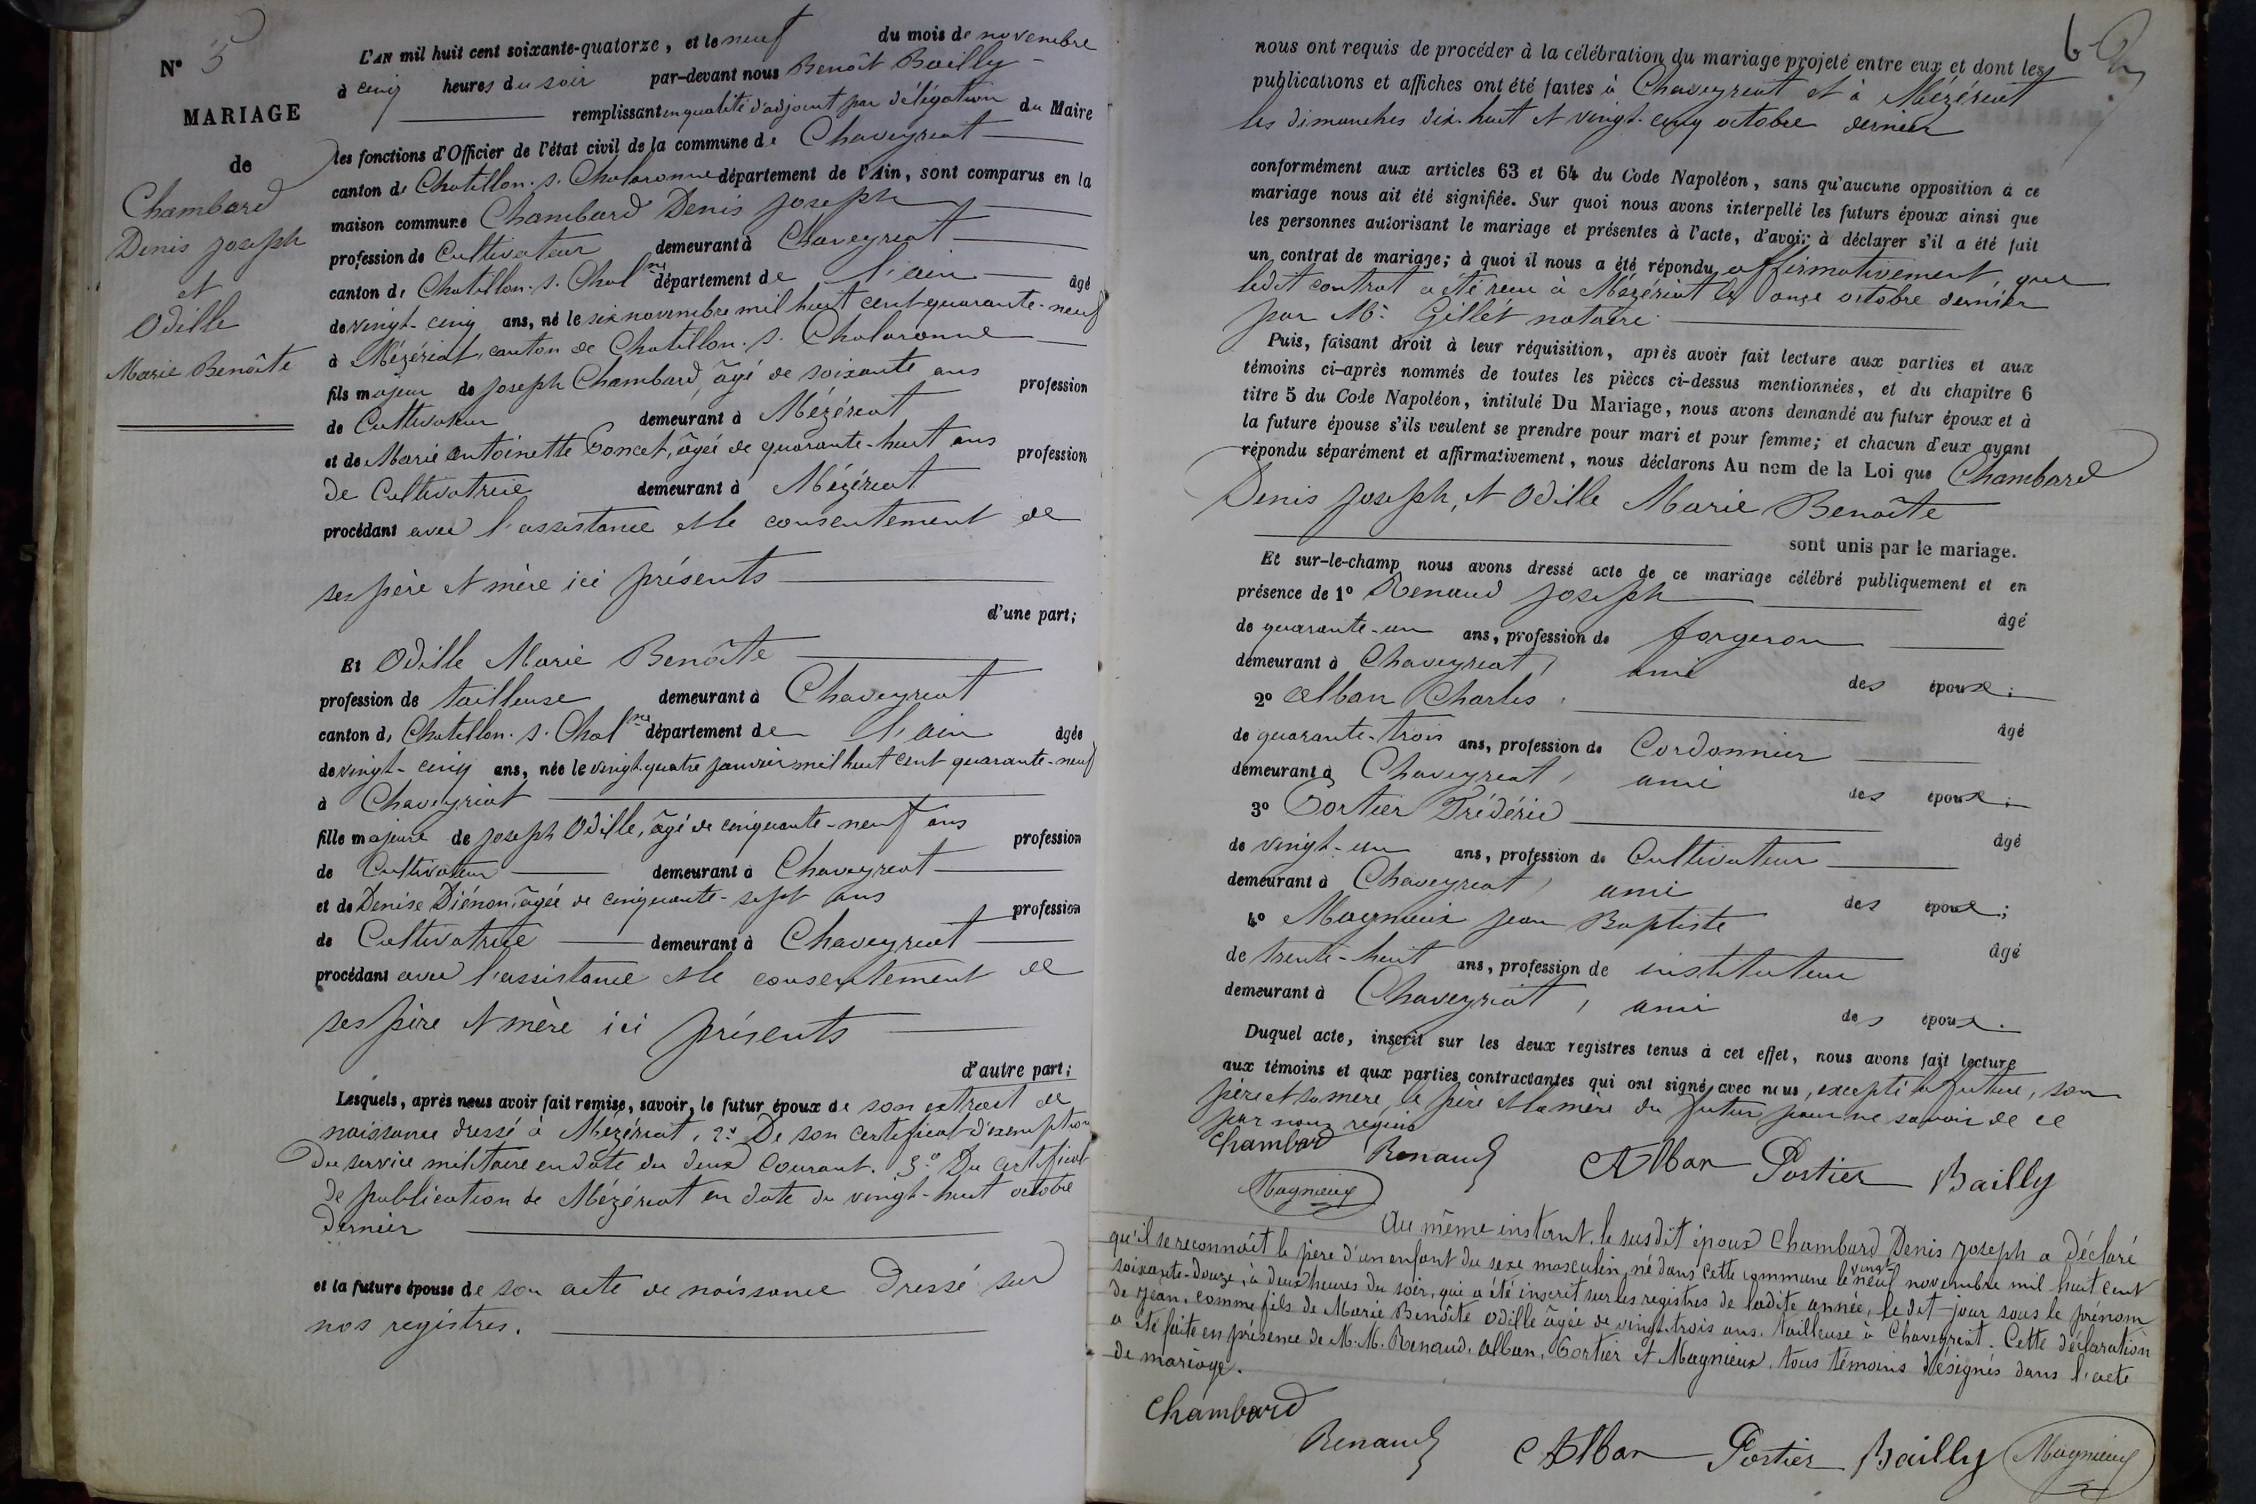 N° 5
MARIAGE
de
Chambard
Denis Joseph
et
Odille
Marie Benoîte
L'AN mil huit cent soixante-quatorze, et le neuf du mois de novembre
à cinq heures du soir par-devant nous Benoît Bailly
remplissant en qualité d'adjoint par délégation du Maire
les fonctions d'Officier de l'état civil de la commune de Chaveyriat
canton de Chatillon. s. Chalaronne département de l'Ain, sont comparus en la
maison commune Chambard Denis Joseph
profession de Cultivateur demeurant à Chaveyriat
canton de Chatillon. s. Chal ne département de l'ain âgé
de vingt-cinq ans, né le six novembre mil huit cent quarante-neuf
à Mézériat, canton de Chatillon. s. Chalaronne
fils majeur de Joseph Chambard, âgé de soixante ans profession
de Cultivateur demeurant à Mézériat
et de Marie Antoinette Poncet, âgée de quarante-huit ans profession
de Cultivatrice demeurant à Mézériat
procédant avec l'assistance et le consentement de
ses père et mère ici présents
d'une part;
Et Odille Marie Benoîte
profession de tailleuse demeurant à Chaveyriat
canton de Chatillon. s. Chal ne département de l'ain âgée
de vingt-cinq ans, née le vingt-quatre janvier mil huit cent quarante-neuf
à Chaveyriat
fille majeure de Joseph Odille, âgé de cinquante-neuf ans profession
de Cultivateur demeurant à Chaveyriat
et de Denise Diénon, âgée de cinquante-sept ans profession
de Cultivatrice demeurant à Chaveyriat
procédant avec l'assistance et le consentement de
ses père et mère ici présents
d'autre part;
Lesquels, après nous avoir fait remise, savoir, le futur époux de son extrait de
naissance dressé à Mézériat, 2° De son certificat d'exemption
du service militaire en date du deux courant. 3° Du certificat
de publication de Mézériat en date du vingt-huit octobre
dernier
et la future épouse de son acte de naissance dressé sur
nos registres.
6
nous ont requis de procéder à la célébration du mariage projeté entre eux et dont les
publications et affiches ont été faites à Chaveyriat et à Mézériat
les dimanches dix-huit et vingt-cinq octobre dernier
conformément aux articles 63 et 64 du Code Napoléon, sans qu'aucune opposition à ce
mariage nous ait été signifiée. Sur quoi nous avons interpellé les futurs époux ainsi que
les personnes autorisant le mariage et présentes à l'acte, d'avoir à déclarer s'il a été fait
un contrat de mariage; à quoi il nous a été répondu affirmativement, que
ledit contrat a été reçu à Mézériat le onze octobre dernier
par Me Gillet notaire
Puis, faisant droit à leur réquisition, après avoir fait lecture aux parties et aux
témoins ci-après nommés de toutes les pièces ci-dessus mentionnées, et du chapitre 6
titre 5 du Code Napoléon, intitulé Du Mariage, nous avons demandé au futur époux et à
la future épouse s'ils veulent se prendre pour mari et pour femme; et chacun d'eux ayant
répondu séparément et affirmativement, nous déclarons Au nom de la Loi que Chambard
Denis Joseph, et Odille Marie Benoîte
sont unis par le mariage.
Et sur-le-champ nous avons dressé acte de ce mariage célébré publiquement et en
présence de 1° Renaud Joseph âgé
de quarante-un ans, profession de forgeron
demeurant à Chaveyriat, ami des époux;
2° Alban Charles, âgé
de quarante-trois ans, profession de Cordonnier
demeurant à Chaveyriat, ami des époux;
3° Portier Frédéric âgé
de vingt-un ans, profession de Cultivateur
demeurant à Chaveyriat, ami des époux;
4° Magnieux Jean Baptiste âgé
de trente-huit ans, profession de instituteur
demeurant à Chaveyriat, ami des époux.
Duquel acte, inscrit sur les deux registres tenus à cet effet, nous avons fait lecture
aux témoins et aux parties contractantes qui ont signé avec nous, excepté la future, son
père et sa mère, le père et la mère du futur pour ne savoir de ce
par nous requis
Chambard Renaud Alban Portier Bailly
Magnieux
Au même instant, le susdit époux Chambard Denis Joseph a déclaré
qu'il se reconnaît le père d'un enfant du sexe masculin, né dans cette commune le vingt neuf novembre mil huit cent
soixante-douze, à deux heures du soir, qui a été inscrit sur les registres de ladite année, le dit jour sous le prénom
de Jean, comme fils de Marie Benoîte Odille âgée de vingt-trois ans, tailleuse à Chaveyriat. Cette déclaration
a été faite en présence de M.M. Renaud, Alban, Portier et Magnieux, tous témoins désignés dans l'acte
de mariage.
Chambard
Renaud Alban Portier Bailly Magnieux